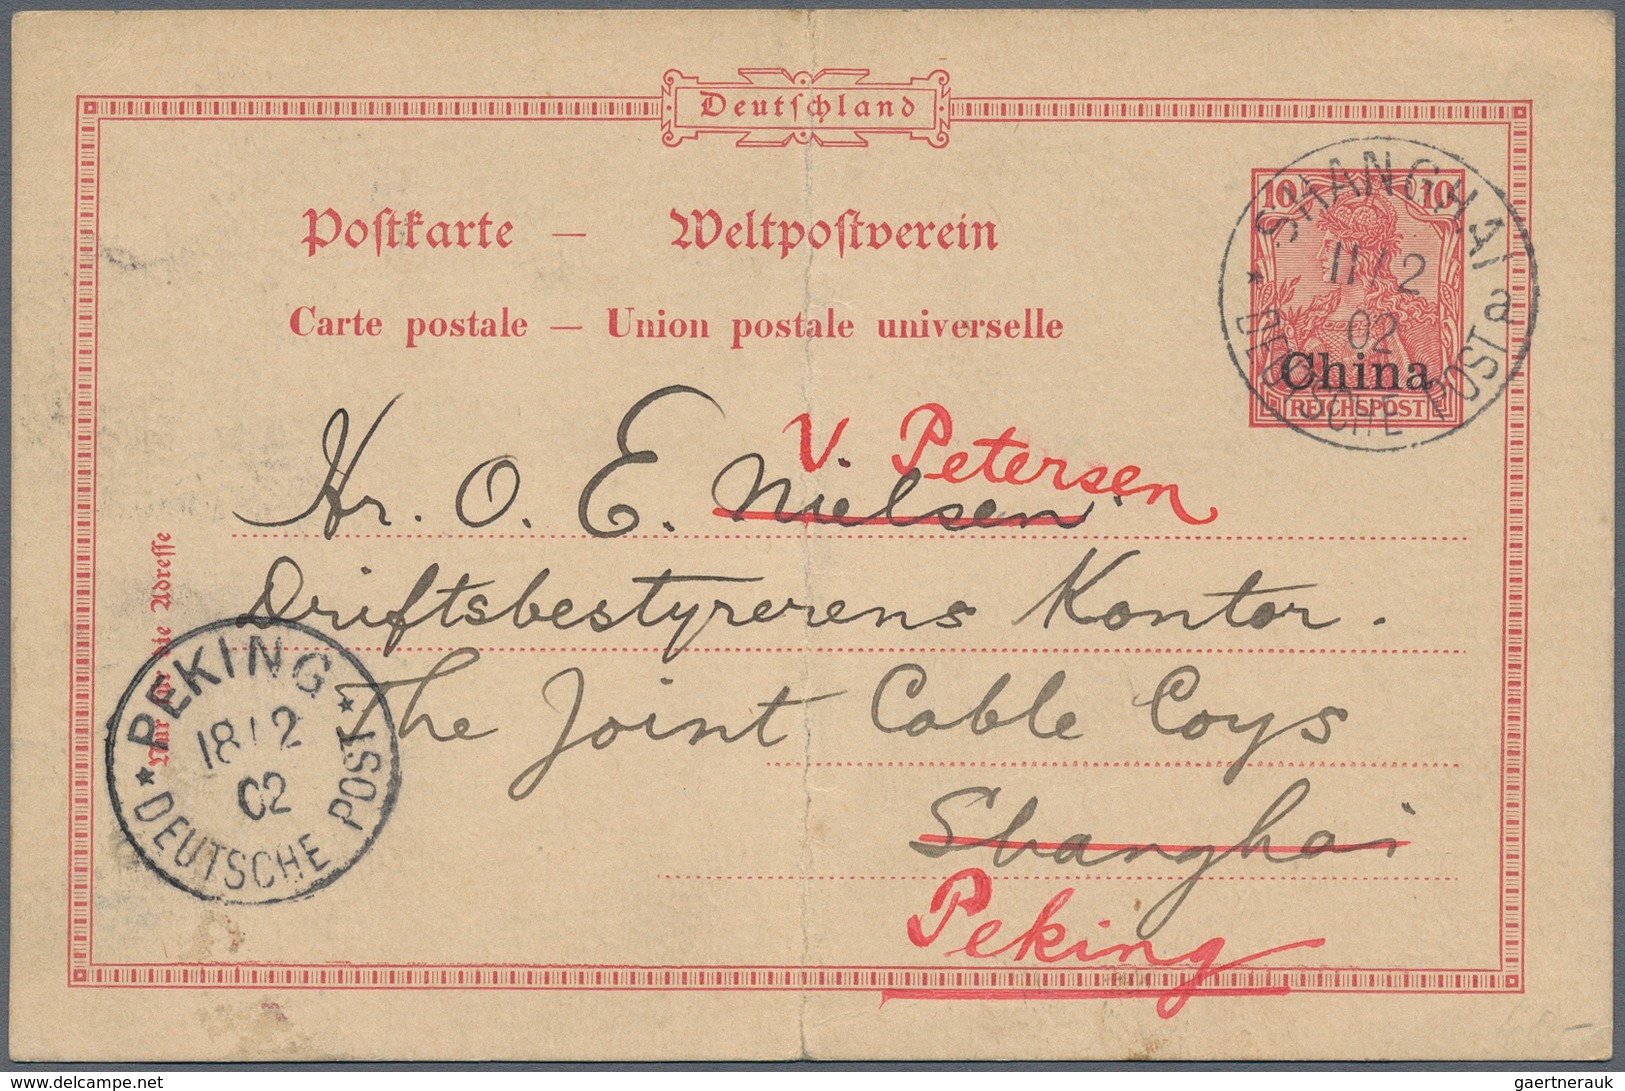 Deutschland
Postkarte — Weltpostverein
Carte postale — Union postale universelle
10 10
China
REICHSPOST
SHANGHAI a
11/2
02
* DEUTSCHE POST
V. Petersen
Hr. O. E. Nielsen.
Driftsbestyrerens Kontor.
The Joint Cable Coys
Shanghai
Peking
Nur für die Adresse
PEKING
18/2
02
* DEUTSCHE POST *
www.delcampe.net
gaertnerauk